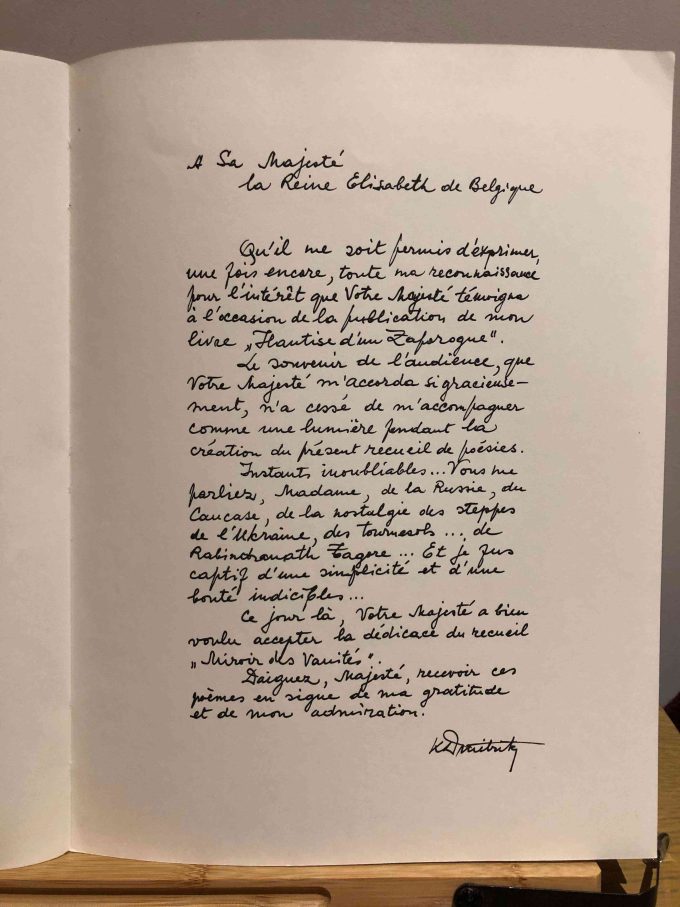 A Sa Majesté
la Reine Elisabeth de Belgique
Qu'il me soit permis d'éxprimer,
une fois encore, toute ma reconnaissance
pour l'intérêt que Votre Majesté témoigna
à l'occasion de la publication de mon
livre „Hantise d'un Zaporogue".
Le souvenir de l'audience, que
Votre Majesté m'accorda si gracieuse-
ment, n'a cessé de m'accompagner
comme une lumière pendant la
création du présent recueil de poésies.
Instants inoubliables... Vous me
parliez, Madame, de la Russie, du
Caucase, de la nostalgie des steppes
de l'Ukraine, des tournesols ... de
Rabindranath Tagore ... Et je fus
captif d'une simplicité et d'une
bonté indicibles...
Ce jour là, Votre Majesté a bien
voulu accepter la dédicace du recueil
„Miroir des Vanités".
Daignez, Majesté, recevoir ces
poèmes en signe de ma gratitude
et de mon admiration.